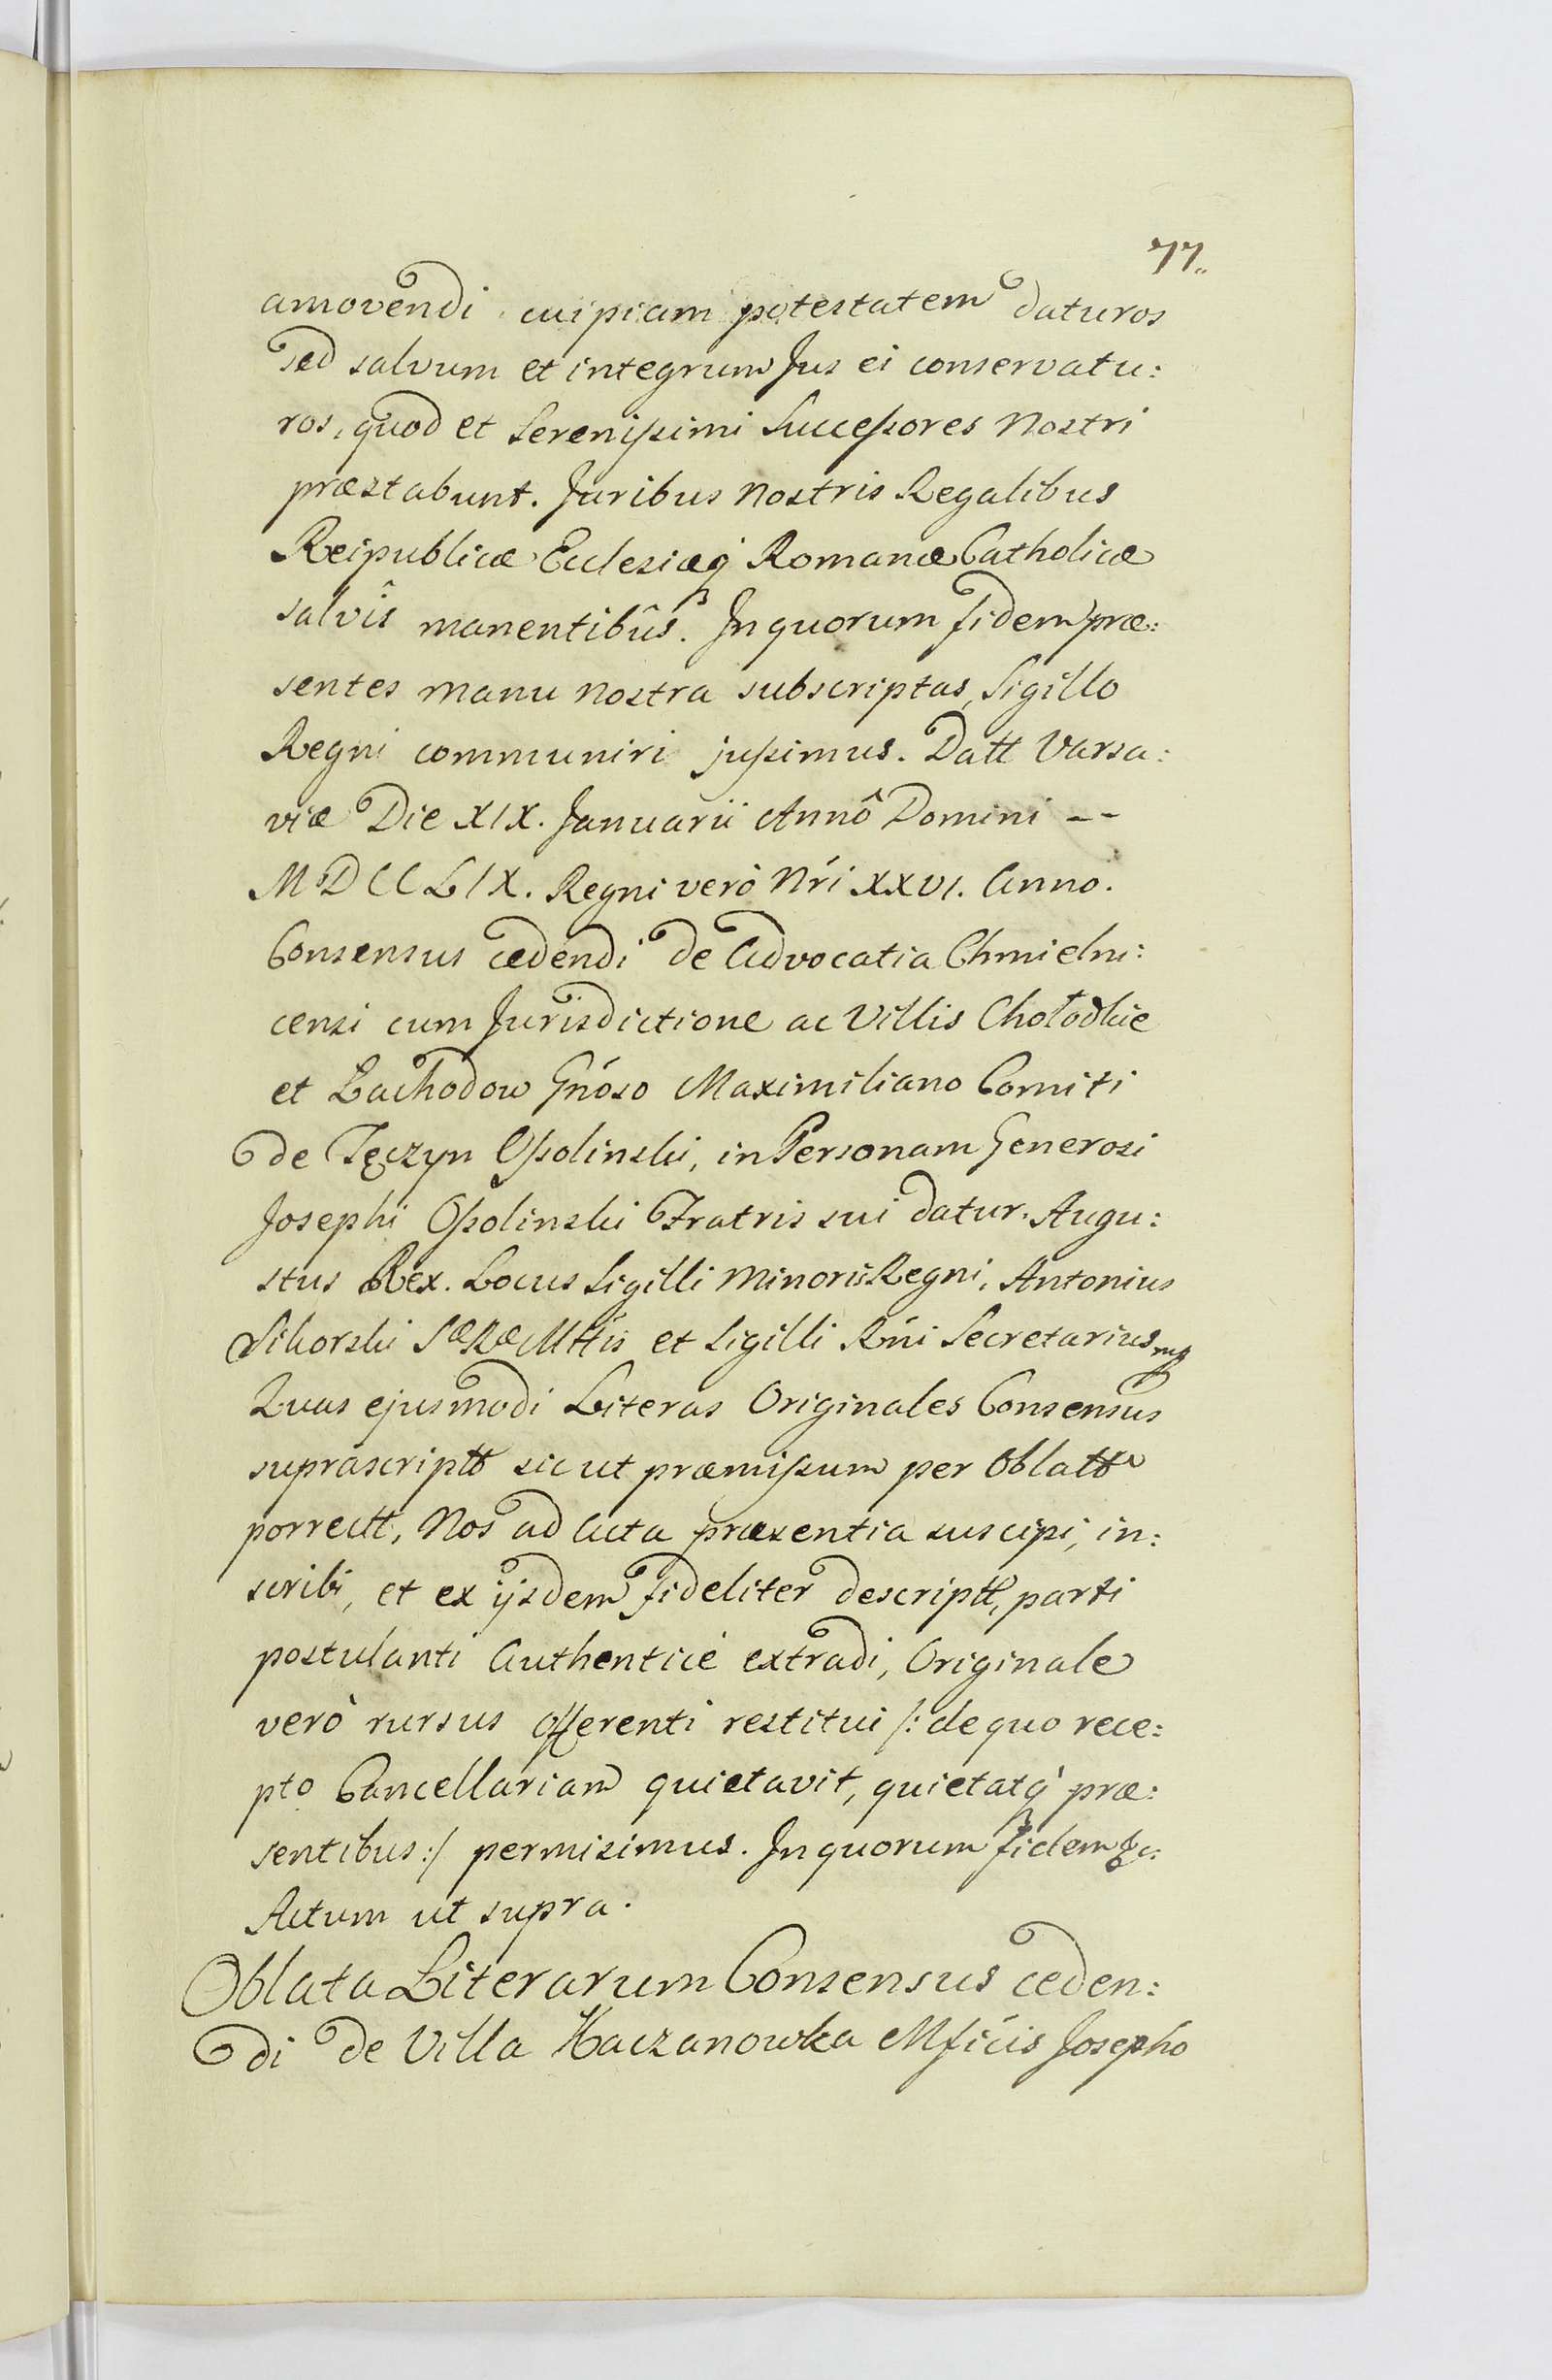 77.
amovendi cuipiam potestatem daturos
sed salvum et integrum Jus ei conservatu:
ros, quod et Serenissimi Successores Nostri
præstabunt. Juribus Nostris Regalibus
Reipublicæ Ecclesiæq́ Romanæ Catholicæ
salvîs manentibûs. In quorum fidem præ:
sentes manu nostra subscriptas, Sigillo
Regni communiri jussimus. Datt Varsa:
viæ Die XIX. Januarii Annô Domini --
MDCCLIX. Regni verò Nri XXVI. Anno.
Consensus cedendi de Advocatia Chmielni:
censi cum Jurisdictione ac Villis Chołodkie
et Lachodow Gnoso Maximiliano Comiti
de Tęczyn Ossolinski, in Personam Generosi
Josephi Ossolinski Fratris sui datur. Augu:
stus Rex. Locus Sigilli Minoris Regni, Antonius
Sikorski Sæ Ræ Mttis et Sigilli Rni Secretarius mp
Quas ejusmodi Literas Originales Consensus
suprascriptt sic ut præmissum per Oblatt
porrectt, Nos ad Acta præsentia suscipi, in:
scribi, et ex ijsdem fideliter descriptt, parti
postulanti Authenticè extradi, Originale
verò rursus offerenti restitui /: de quo rece:
pto Cancellariam quietavit, quietatq́ præ:
sentibus :/ permisimus. In quorum fidem &c:
Actum ut supra.
Oblata Literarum Consensus ceden:
di de Villa Kaczanowka Mficis Josepho